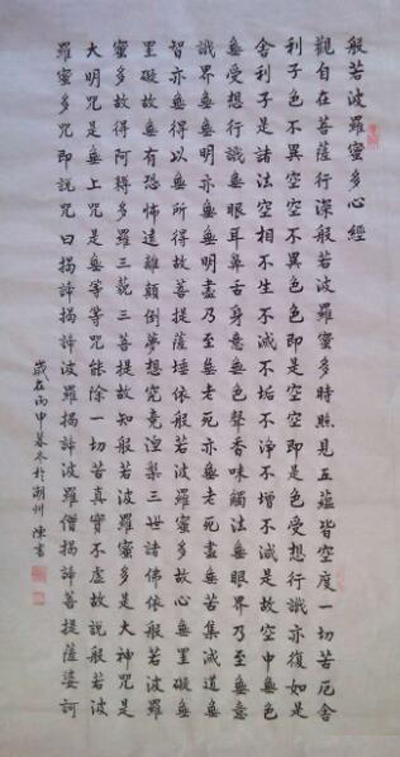 般若波羅蜜多心經
觀自在菩薩行深般若波羅蜜多時照見五蘊皆空度一切苦厄舍
利子色不異空空不異色色即是空空即是色受想行識亦復如是
舍利子是諸法空相不生不滅不垢不淨不增不減是故空中無色
無受想行識無眼耳鼻舌身意無色聲香味觸法無眼界乃至無意
識界無無明亦無無明盡乃至無老死亦無老死盡無苦集滅道無
智亦無得以無所得故菩提薩埵依般若波羅蜜多故心無罣礙無
罣礙故無有恐怖遠離顛倒夢想究竟涅槃三世諸佛依般若波羅
蜜多故得阿耨多羅三藐三菩提故知般若波羅蜜多是大神咒是
大明咒是無上咒是無等等咒能除一切苦真實不虛故說般若波
羅蜜多咒即說咒曰揭諦揭諦波羅揭諦波羅僧揭諦菩提薩婆訶
歲在丙申暮冬於湖州 陳書